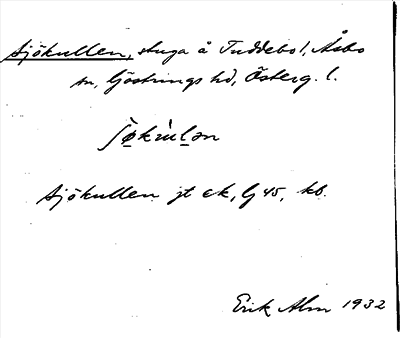 Sjökullen, stuga å Tuddebo l, Åsbo
sn, Göstrings hd, Österg. l.
Sjökullen jt ek, G 45, kb.
Erik Alm 1932